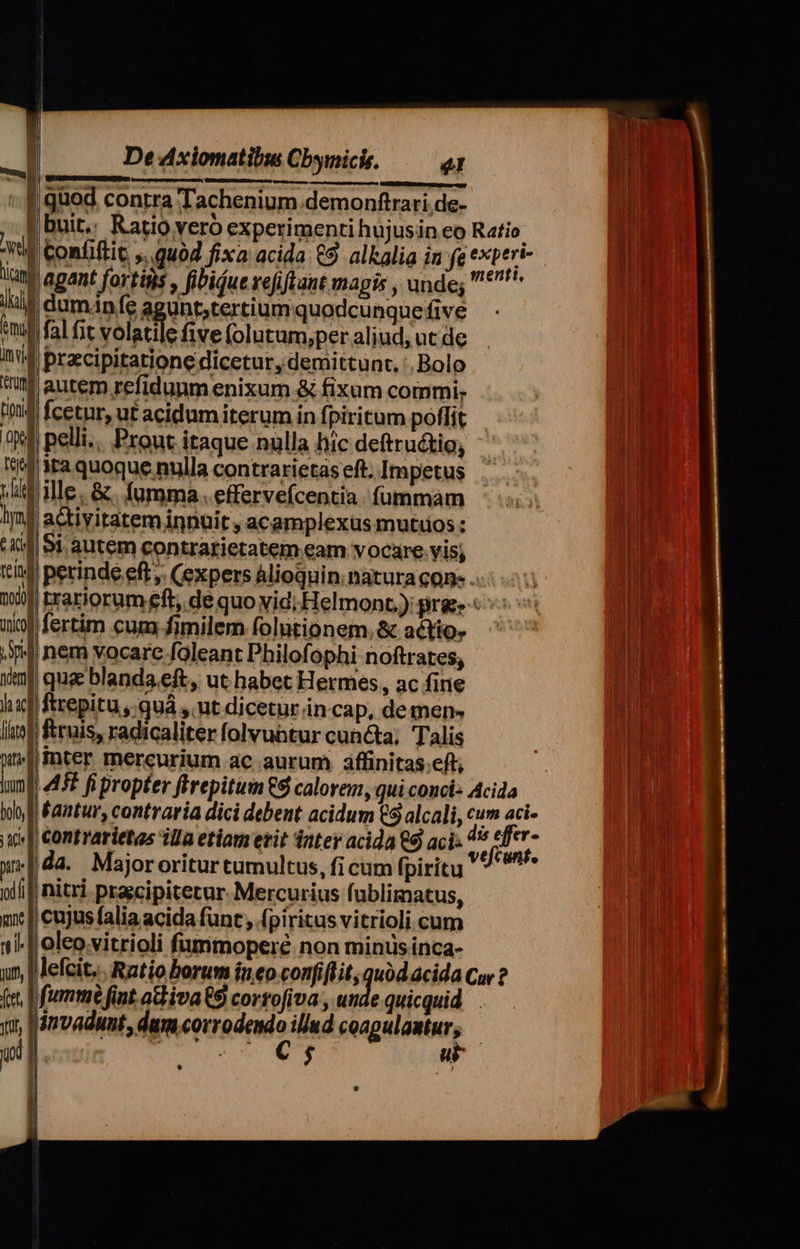 De Axiomatibus Chymicis. 41
quod contra Tachenium demonſtrari de-
buit. Ratio verò experimenti hujus in eo
conſiſtit, quòd fixa acida & alkalia in ſe
agant fortiùs, ſibique reſiſtant magis, unde,
dum in ſe agunt, tertium quodcunque ſive
ſal ſit volatile ſive ſolutum, per aliud, ut de
præcipitatione dicetur, demittunt. Bolo
autem reſiduum enixum & fixum commi-
ſcetur, ut acidum iterum in ſpiritum poſſit
pelli. Prout itaque nulla hîc deſtructio,
ita quoque nulla contrarietas eſt. Impetus
ille, & ſumma efferveſcentia ſummam
activitatem innuit, ac amplexus mutuos:
Si autem contrarietatem eam vocare vis,
perinde eſt, (expers alioquin natura con-
trariorum eſt, de quo vid. Helmont.) præ-
ſertim cum ſimilem ſolutionem, & actio-
nem vocare ſoleant Philoſophi noſtrates,
quæ blanda eſt, ut habet Hermes, ac ſine
ſtrepitu, quâ, ut dicetur in cap. de men-
ſtruis, radicaliter ſolvuntur cuncta. Talis
inter mercurium ac aurum affinitas eſt,
Aſt ſi propter ſtrepitum & calorem, qui conci-
tantur, contraria dici debent acidum & alcali,
contrarietas illa etiam erit inter acida & aci-
da. Major oritur tumultus, ſi cum ſpiritu
nitri præcipitetur Mercurius ſublimatus,
cujus ſalia acida ſunt, ſpiritus vitrioli cum
oleo vitrioli ſummoperè non minùs inca-
leſcit. Ratio horum in eo conſiſtit, quòd acida
ſummè ſint activa & corroſiva, unde quicquid
invadunt, dum corrodendo illud coagulantur,
C 5 ut
Ratio
experi-
menti.
Acida
cum aci-
dis effer-
veſcunt.
Cur?